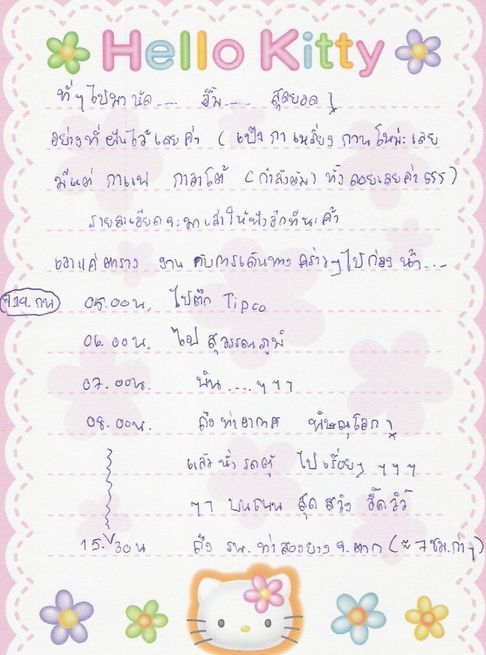 Hello Kitty
ที่ๆไปมา นัด.... อิ่ม.... สุดยอด !
อย่างที่ ฝันไว้ เลย ค่ะ (
มีแต่ กาแฟ (กำลังต้ม) ทั้ง ดอยเลยค่ะ
รายละเอียดจะมาเล่าให้ฟังอีกทีนะค้า
เอาแค่ตาราง งาน กับการเดินทาง คร่าวๆไปก่อน น้า...
05.00น. ไปตึก Tipco
06.00น. ไป สุวรรณภูมิ
07.00น. บิน....ๆๆๆ
08.00น. ถึง ท่าอากาศ พิษณุโลก !
แล้ว นั่ง รถตู้ ไป เรื่อยๆ ๆๆๆ
ๆๆ บนถนน สุด
15.30น ถึง รพ. ท่าสองยาง จ.ตาก (≈ 7 ชม. กว่าๆ)